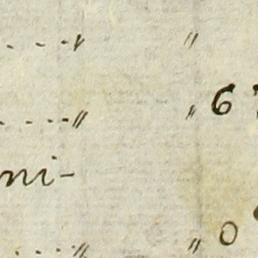 ....〃 〃
....〃 〃 6
ni-
....〃 〃 0